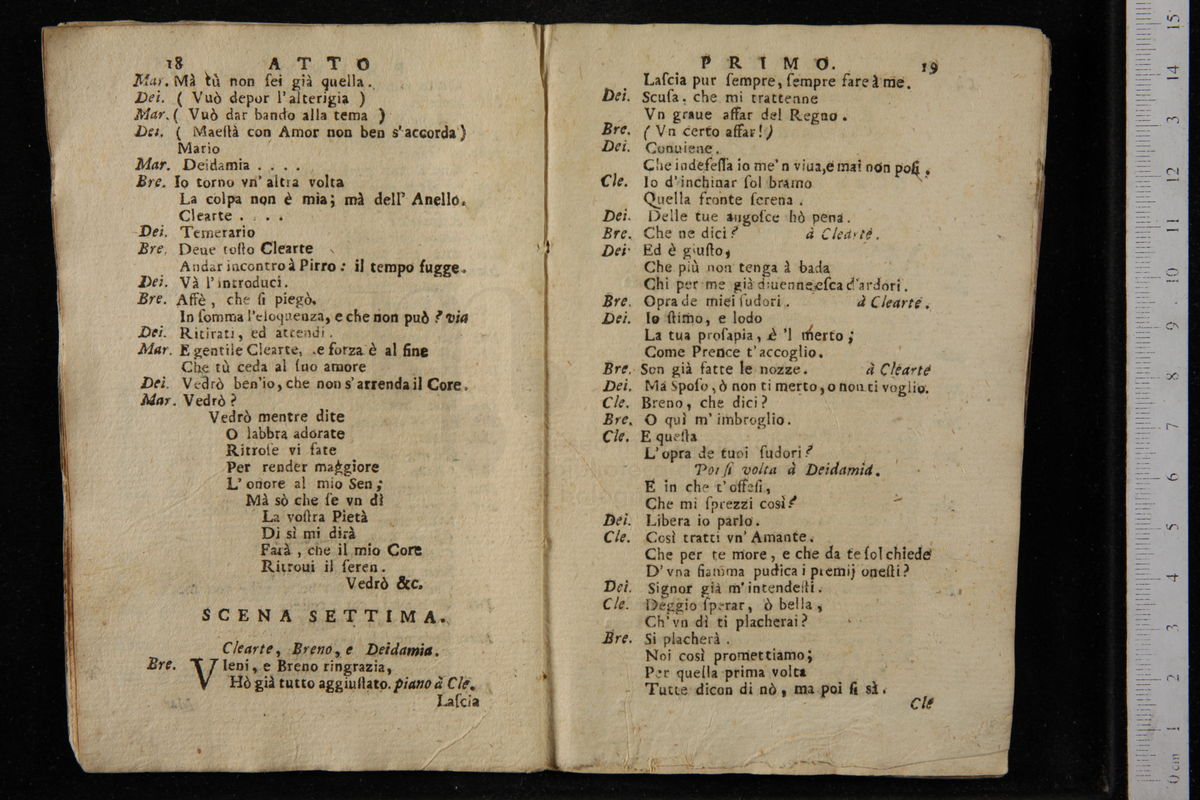 18 ATTO
Mar. Mà tù non ſei già quella.
Dei. ( Vuò depor l'alterigia )
Mar. ( Vuò dar bando alla tema )
Dei. ( Maeſtà con Amor non ben s'accorda )
Mario
Mar. Deidamia . . . .
Bre. Io torno vn' altra volta
La colpa non è mia; mà dell' Anello.
Clearte . . . .
Dei. Temerario
Bre. Deue toſto Clearte
Andar incontro à Pirro: il tempo fugge.
Dei. Và l'introduci.
Bre. Affè, che ſi piegò.
In ſomma l'eloquenza, e che non può? via
Dei. Ritirati, ed attendi.
Mar. E gentile Clearte, e forza è al fine
Che tù ceda al ſuo amore
Dei. Vedrò ben'io, che non s'arrenda il Core.
Mar. Vedrò?
Vedrò mentre dite
O labbra adorate
Ritroſe vi fate
Per render maggiore
L'onore al mio Sen;
Mà sò che ſe vn dì
La voſtra Pietà
Di sì mi dirà
Farà, che il mio Core
Ritroui il ſeren.
Vedrò &c.
SCENA SETTIMA.
Clearte, Breno, e Deidamia.
Bre. VIeni, e Breno ringrazia,
Hò già tutto aggiuſtato. piano à Cle.
Laſcia
PRIMO. 19
Laſcia pur ſempre, ſempre fare à me.
Dei. Scuſa, che mi trattenne
Vn graue affar del Regno.
Bre. ( Vn certo affar! )
Dei. Conuiene.
Che indefeſſa io me'n viua, e mai non poſi.
Cle. Io d'inchinar ſol bramo
Quella fronte ſerena.
Dei. Delle tue angoſce hò pena.
Bre. Che ne dici? à Clearte.
Dei. Ed è giuſto,
Che più non tenga à bada
Chi per me già diuenne eſca d'ardori.
Bre. Opra de miei ſudori. à Clearte.
Dei. Io ſtimo, e lodo
La tua proſapia, è 'l merto;
Come Prence t'accoglio.
Bre. Son già fatte le nozze. à Clearte
Dei. Ma Spoſo, ò non ti merto, o non ti voglio.
Cle. Breno, che dici?
Bre. O quì m'imbroglio.
Cle. E queſta
L'opra de tuoi ſudori?
Poi ſi volta à Deidamia.
E in che t'offeſi,
Che mi ſprezzi così?
Dei. Libera io parlo.
Cle. Così tratti vn' Amante.
Che per te more, e che da te ſol chiede
D'vna fiamma pudica i premij oneſti?
Dei. Signor già m'intendeſti.
Cle. Deggio ſperar, ò bella,
Ch'vn dì ti placherai?
Bre. Si placherà.
Noi così promettiamo;
Per quella prima volta
Tutte dicon di nò, ma poi ſi sà.
Cle
15
14
13
12
11
10
9
8
7
6
5
4
3
2
1
0 cm